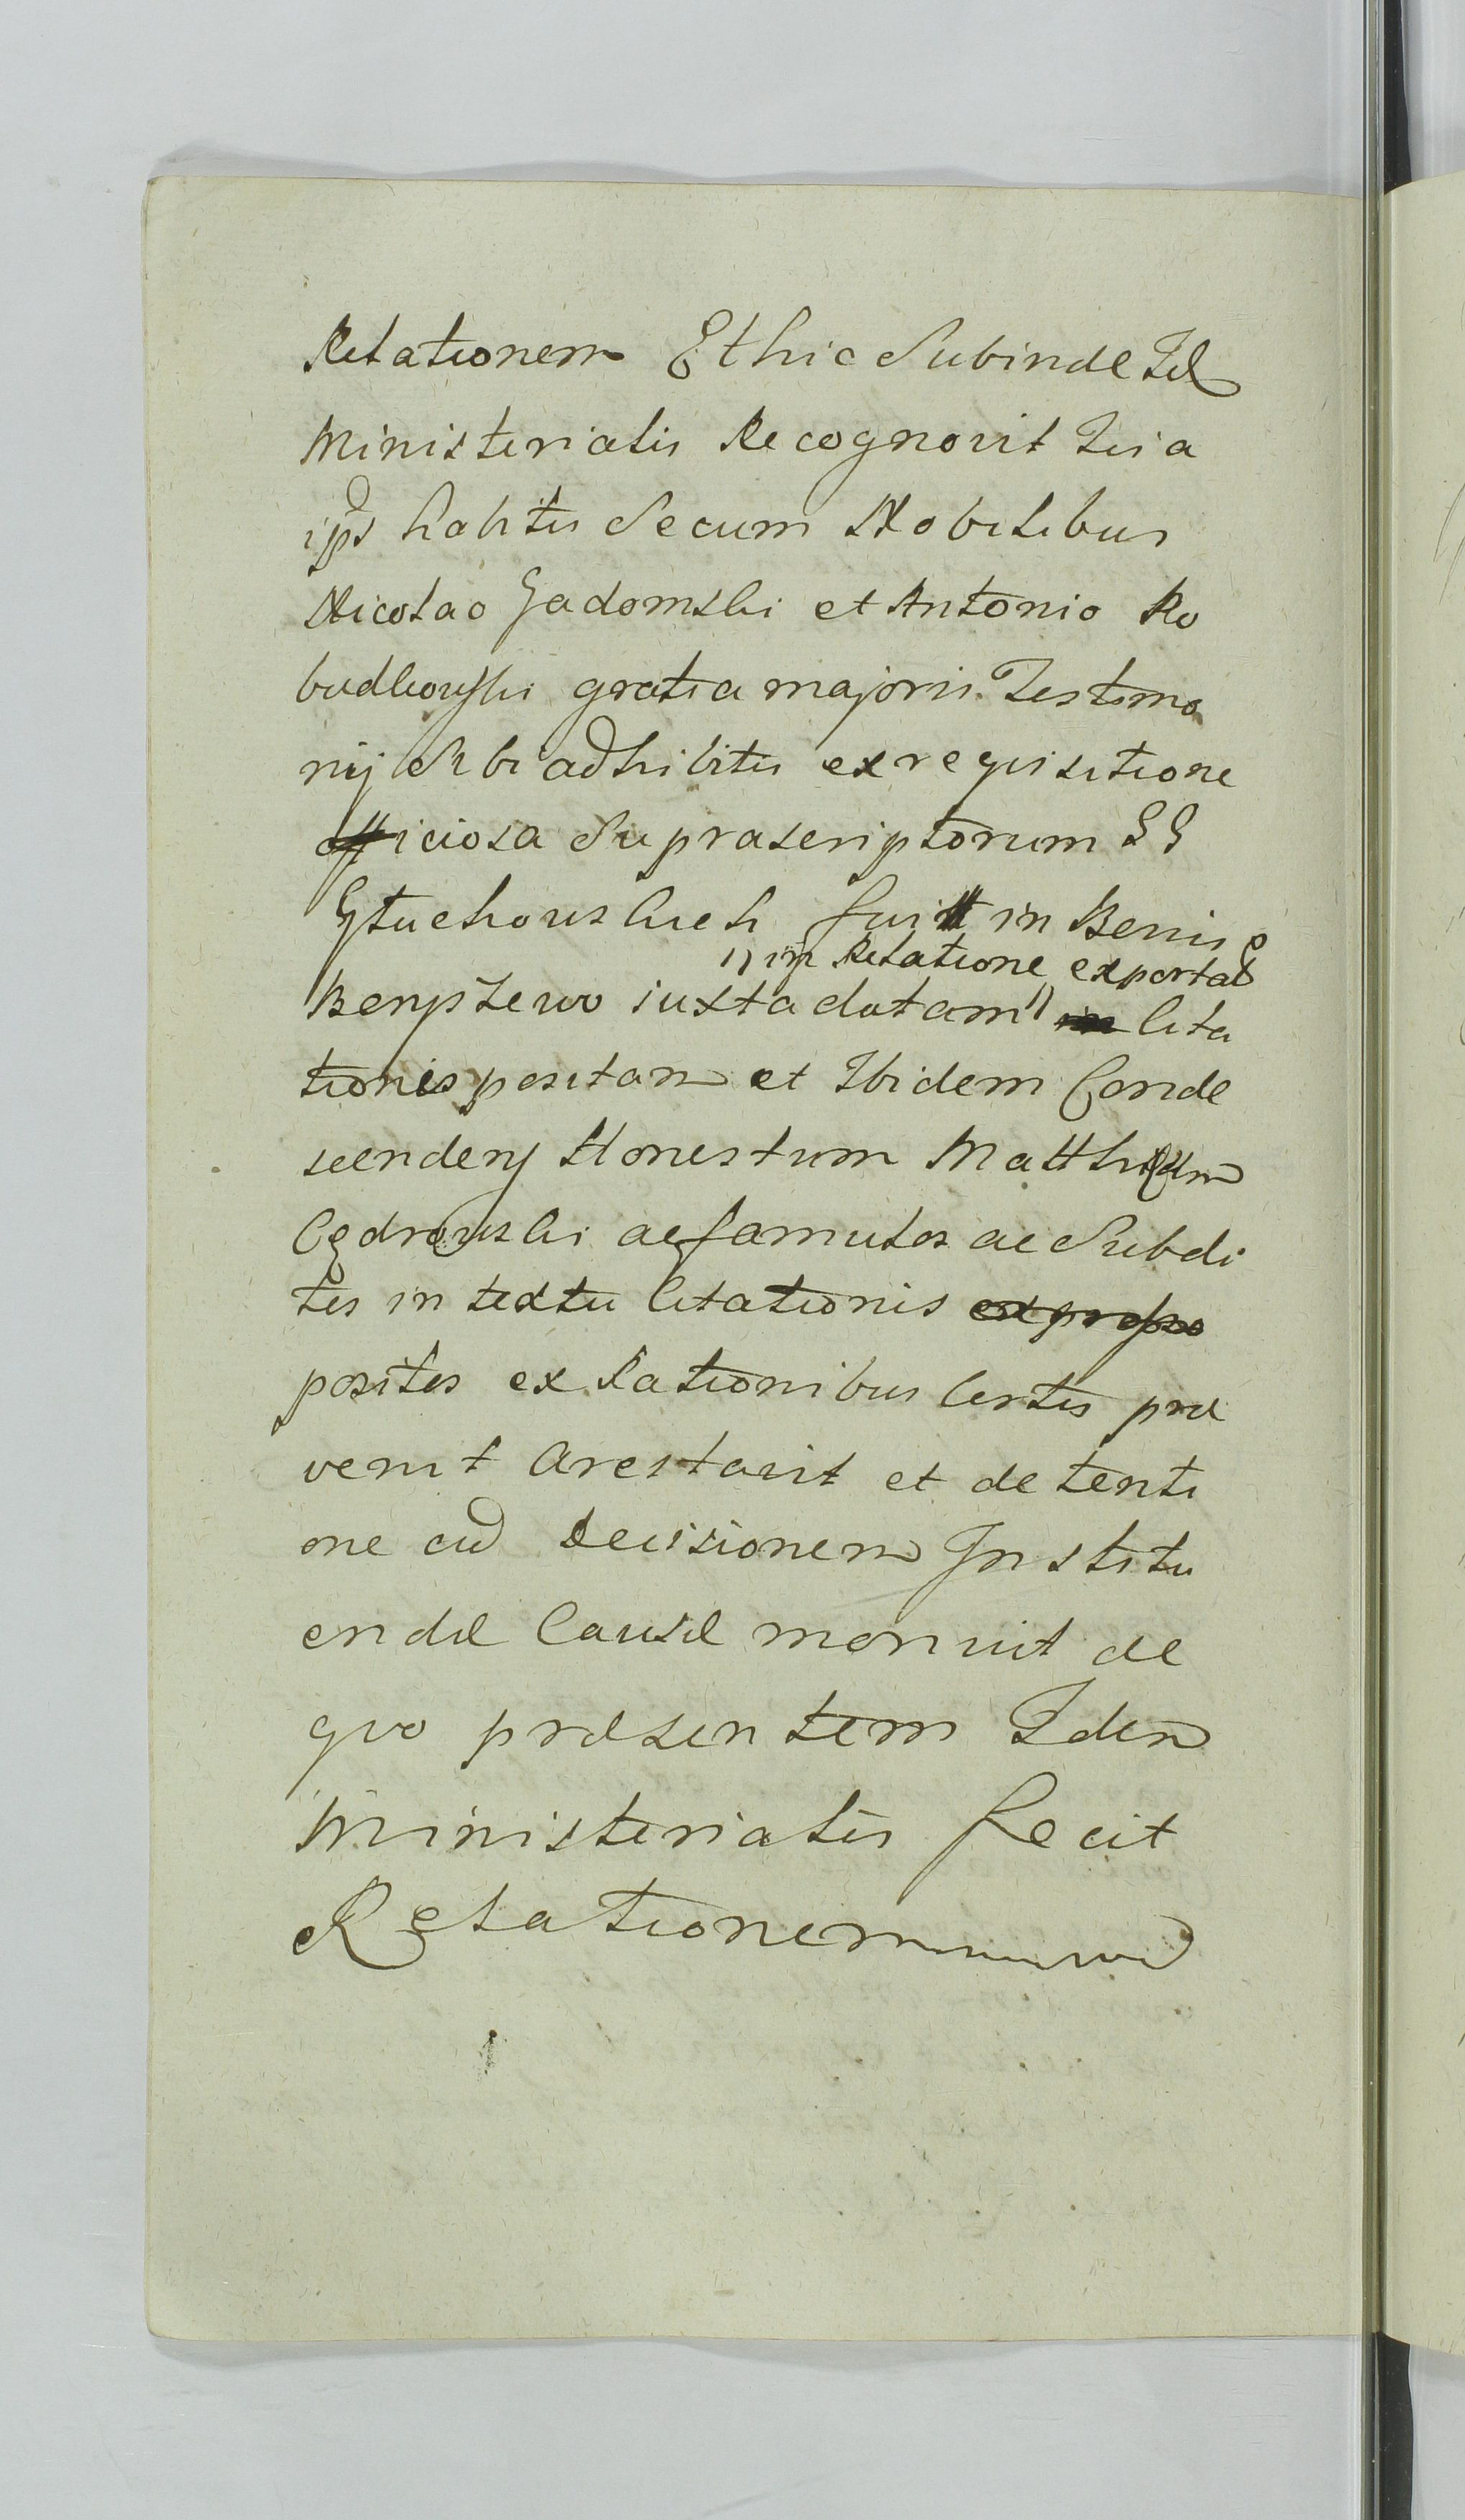 Relationem Et hic Subinde Id
Ministerialis Recognovit Qui a
ips habitis Secum Nobilibus
Nicolao Gadomski et Antonio Ko
budkowski gratia majoris Testimo
nij Sibi adhibitis ex requisitione
officiosa Suprascriptorum GG
Głuchowskich fuit in Bonis
Benpzewo iuxta datam " in Cita
" in Relatione exporta
tionis positam et Ibidem Conde
scendens Honestum Matthiam
Cedrowski ac famulos ac Subdi
tos in textu Citationis
positos ex Rationibus Certis præ
venit Arestavit et de tenti
one ad Decisionem Institu
endæ Causæ monuit de
quo præsentem Idem
Ministerialis fecit
Relationem